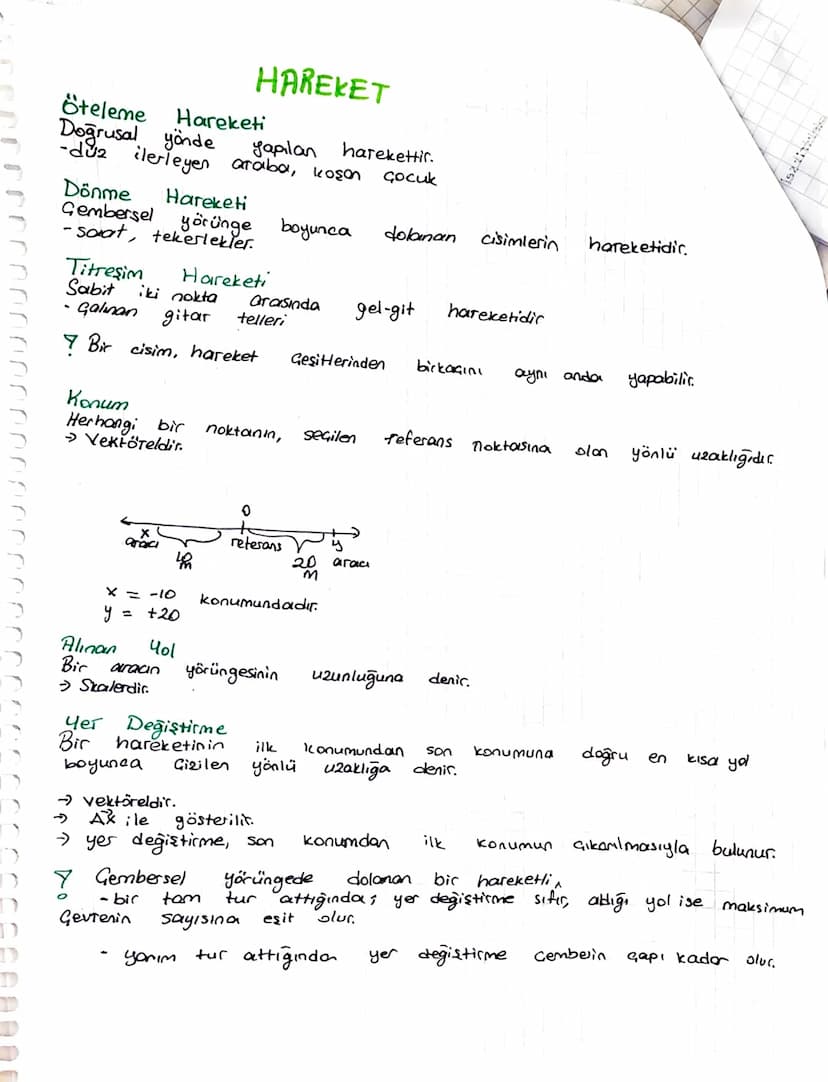 HAREKET
Öteleme Hareketi
Doğrusal yönde yapılan harekettir.
-düz ilerleyen araba, koşan çocuk
Dönme Hareketi
Çembersel yörünge boyunca dolanan cisimlerin hareketidir.
- saat, tekerlekler.
Titreşim Hareketi
Sabit iki nokta arasında gel-git hareketidir
- Çalınan gitar telleri
! Bir cisim, hareket çeşitlerinden birkaçını aynı anda yapabilir.
Konum
Herhangi bir noktanın, seçilen referans noktasına olan yönlü uzaklığıdır.
→ Vektöreldir.
0
x referans y
aracı 20 aracı
m M
x = -10 konumundadır.
y = +20
Alınan Yol
Bir aracın yörüngesinin uzunluğuna denir.
→ Skalerdir.
Yer Değiştirme
Bir hareketinin ilk konumundan son konumuna doğru en kısa yol
boyunca çizilen yönlü uzaklığa denir.
→ vektöreldir.
→ ile gösterilir.
→ yer değiştirme, son konumdan ilk konumun çıkarılmasıyla bulunur.
! Çembersel yörüngede dolanan bir hareketli,
- bir tam tur attığında; yer değiştirme sıfır, aldığı yol ise maksimum
çevrenin sayısına eşit olur.
- yarım tur attığından yer değiştirme çemberin çapı kadar olur.